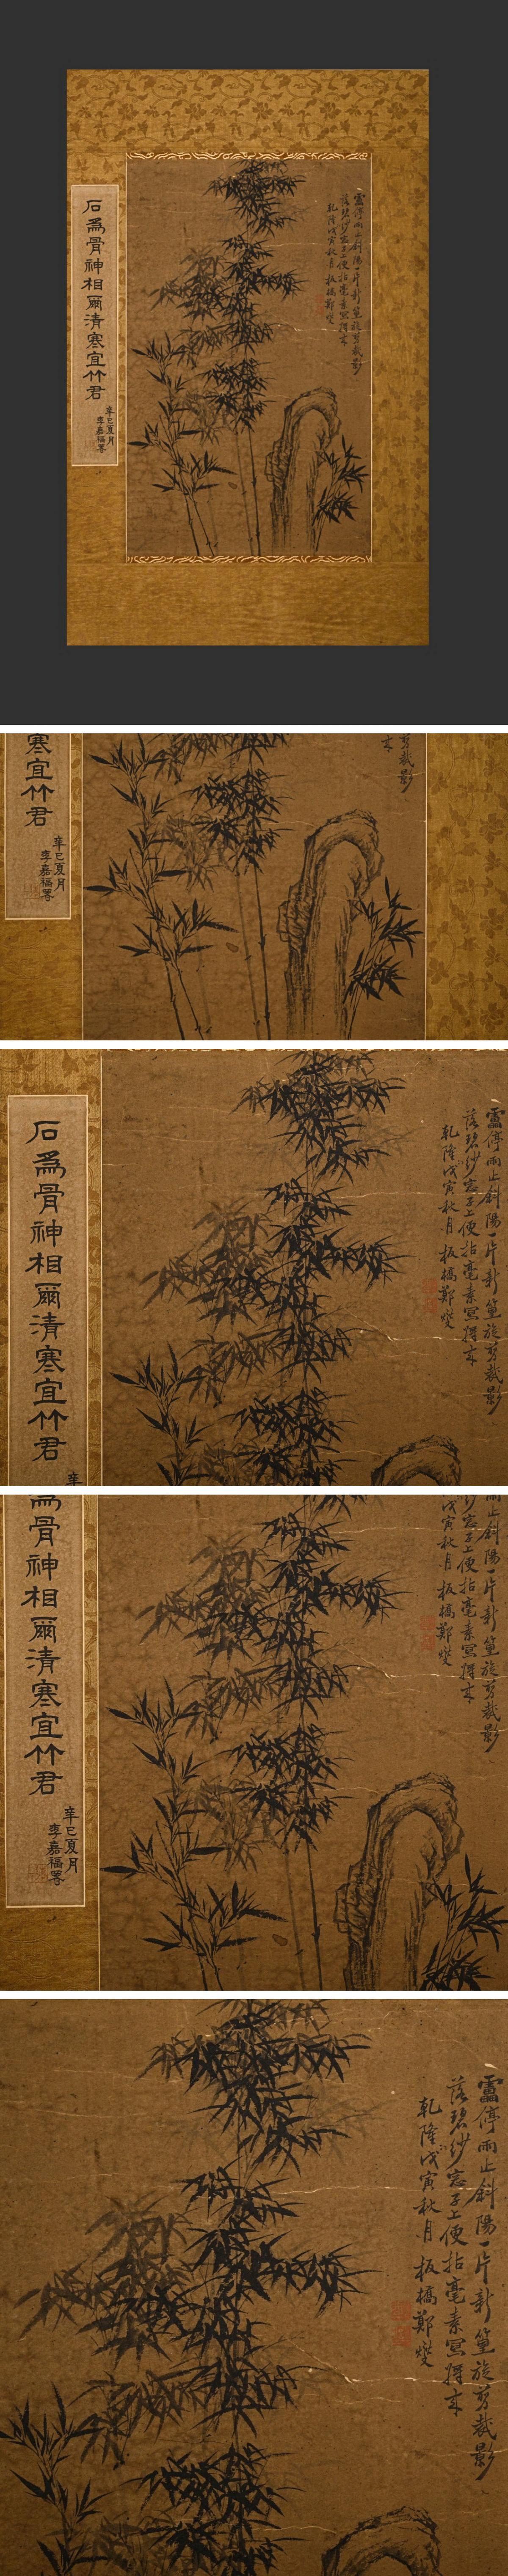 靁停雨止斜陽一片新篁旋剪裁影
落碧紗窓子上便拈毫素寫將来
乾隆戊寅秋月 板橋鄭燮
石為骨神相爾清寒宜竹君
辛巳夏月
李嘉福署